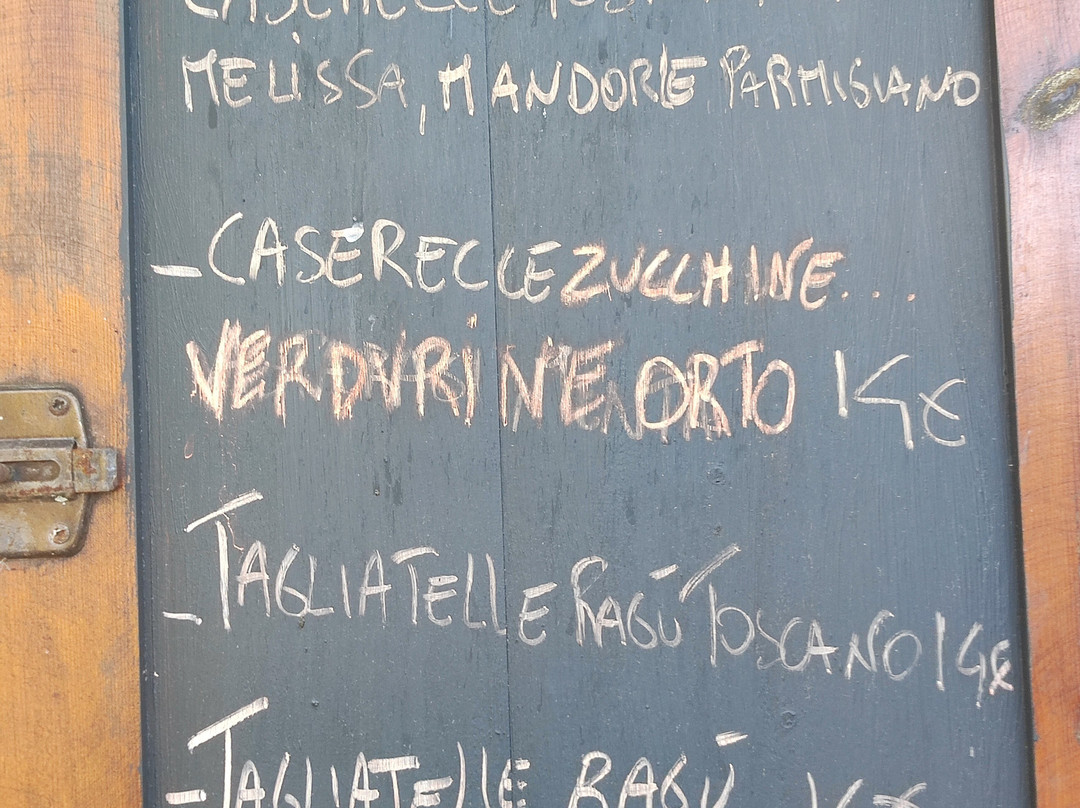 CASERECCE
MELISSA, MANDORLE PARMIGIANO
- CASERECCE ZUCCHINE...
VERDURINE ORTO 14€
- TAGLIATELLE RAGÙ TOSCANO 14€
- TAGLIATELLE RAGÙ